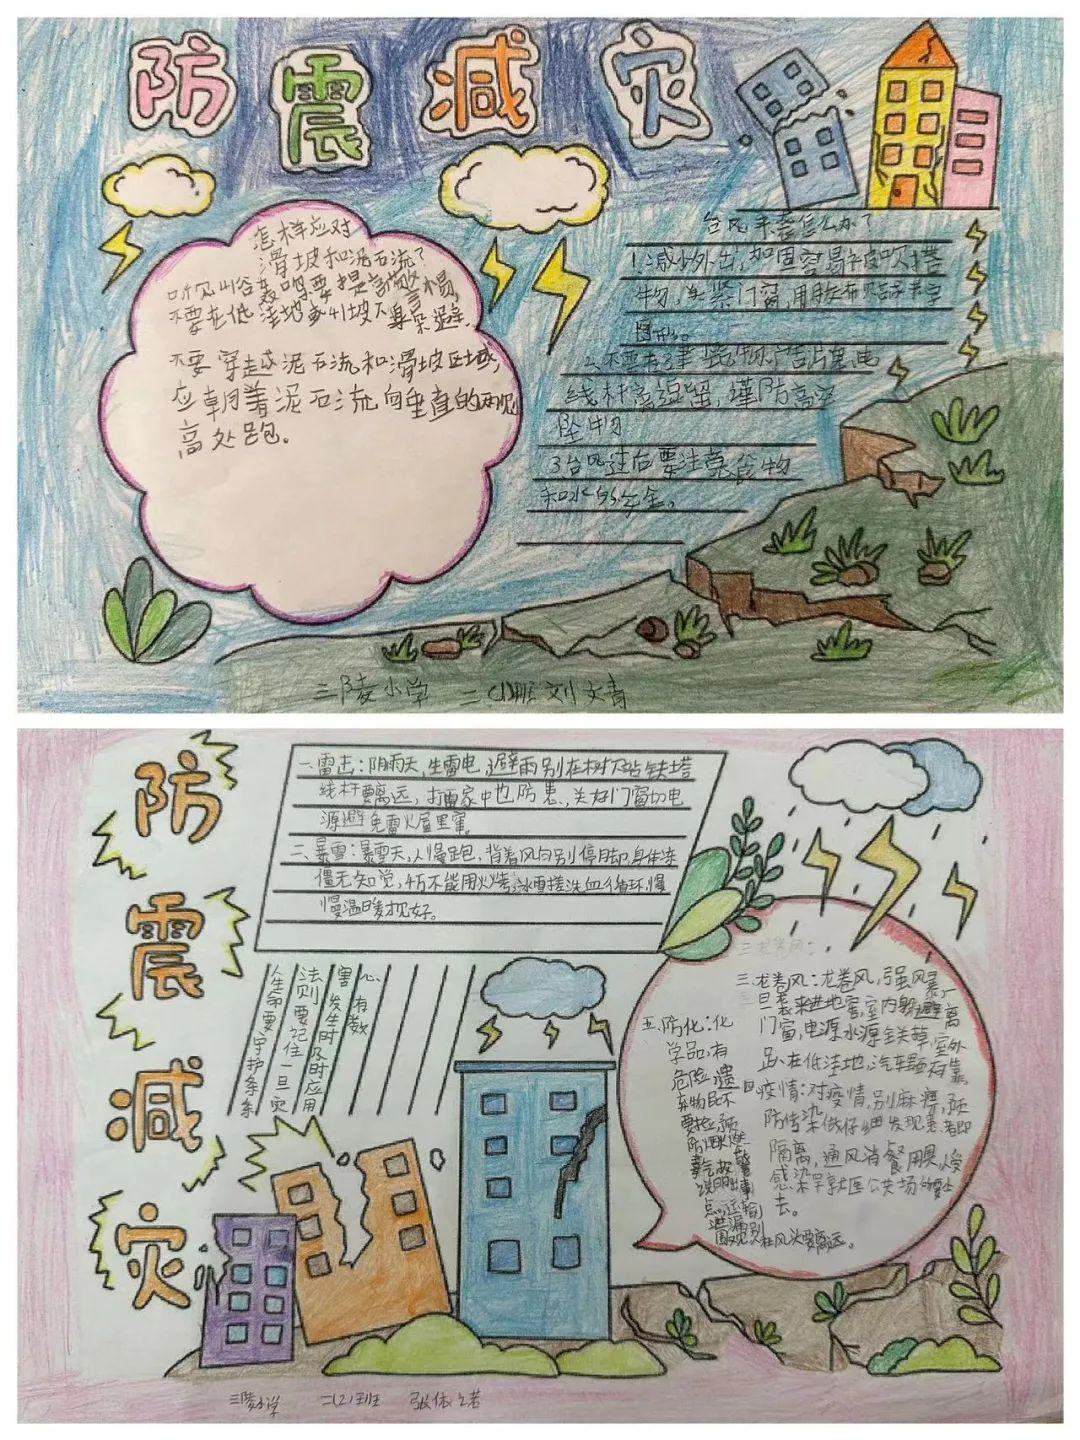 防震减灾
怎样应对
滑坡和泥石流?
听见山谷轰鸣要提高警惕,
不要在低洼地或山坡下身朵避
不要穿越泥石流和滑坡区域,
应朝着泥石流向垂直的两
高处跑。
台风来袭怎么办?
1.减少外出,加固容易被吹搭
物,关紧门窗,用胶布贴米字
图形。
2.不要在建筑物广告牌电
线杆旁逗留,谨防高空
坠物
3.台风过后要注意食物
和水的安全。
三陵小学 二(1)班刘文青
防震减灾
一、雷击:阴雨天,生雷电,避雨别在树下站铁塔
线杆要离远,打雷家中也防患,关好门窗切电
源避免雷火屋里窜。
二、暴雪:暴雪天,人慢跑,背着风向别停脚身体冻
僵无知觉,千万不能用火烤,冰雪搓洗血循环,慢
慢温暖才见好。
心有数
害发生时及时应用
法则要记住一旦灾
人生命要守护条条
三龙卷风:
三.龙卷风:龙卷风,强风暴,
一旦袭来进地窖,室内躲避离
门窗,电源水源全关掉,室外
趴在低洼地,汽车
四疫情:对疫情,别麻痹,预
防传染做仔细发现患者即
隔离,通风消餐用具
感染早社区公共场的要少
去。
五.防化:化
学品,有
危险遗
弃物品不
要捡,预
防
故障
点
泄漏别
围观 在风头要离远。
三陵小学 二(2)班